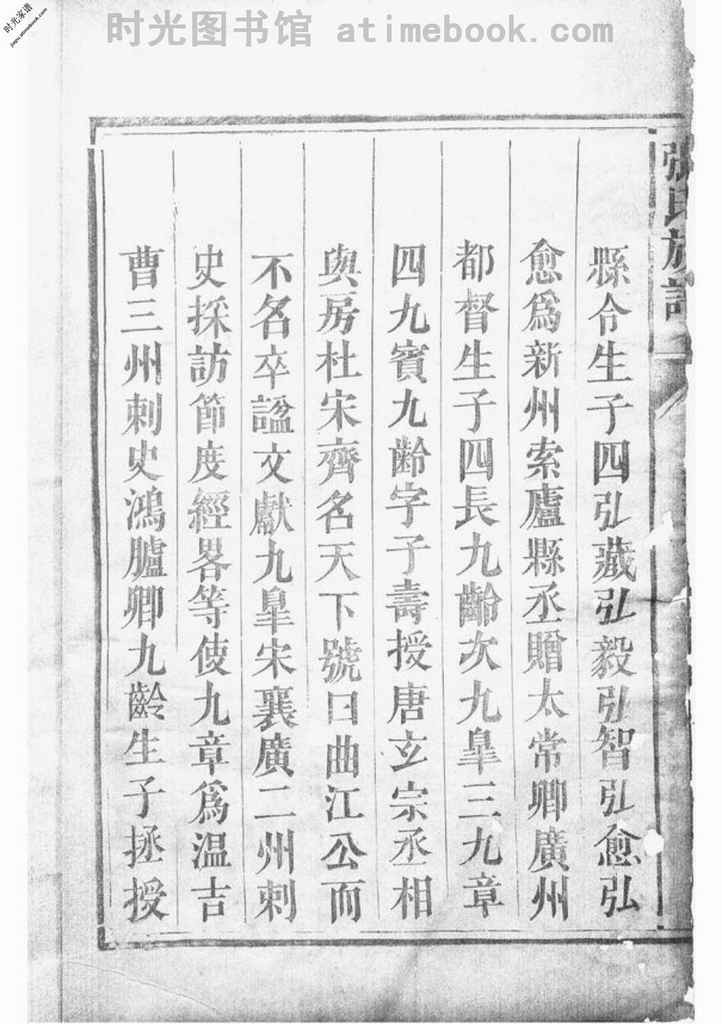 时光图书馆 atimebook.com
时光家谱
jiapu.atimebook.com
張氏族譜
縣令生子四弘藏弘毅弘智弘愈弘
愈爲新州索廬縣丞贈太常卿廣州
都督生子四長九齡次九皐三九章
四九賓九齡字子壽授唐玄宗丞相
與房杜宋齊名天下號曰曲江公而
不名卒諡文獻九皐宋襄廣二州刺
史採訪節度經畧等使九章爲温吉
曹三州刺史鴻臚卿九齡生子拯授